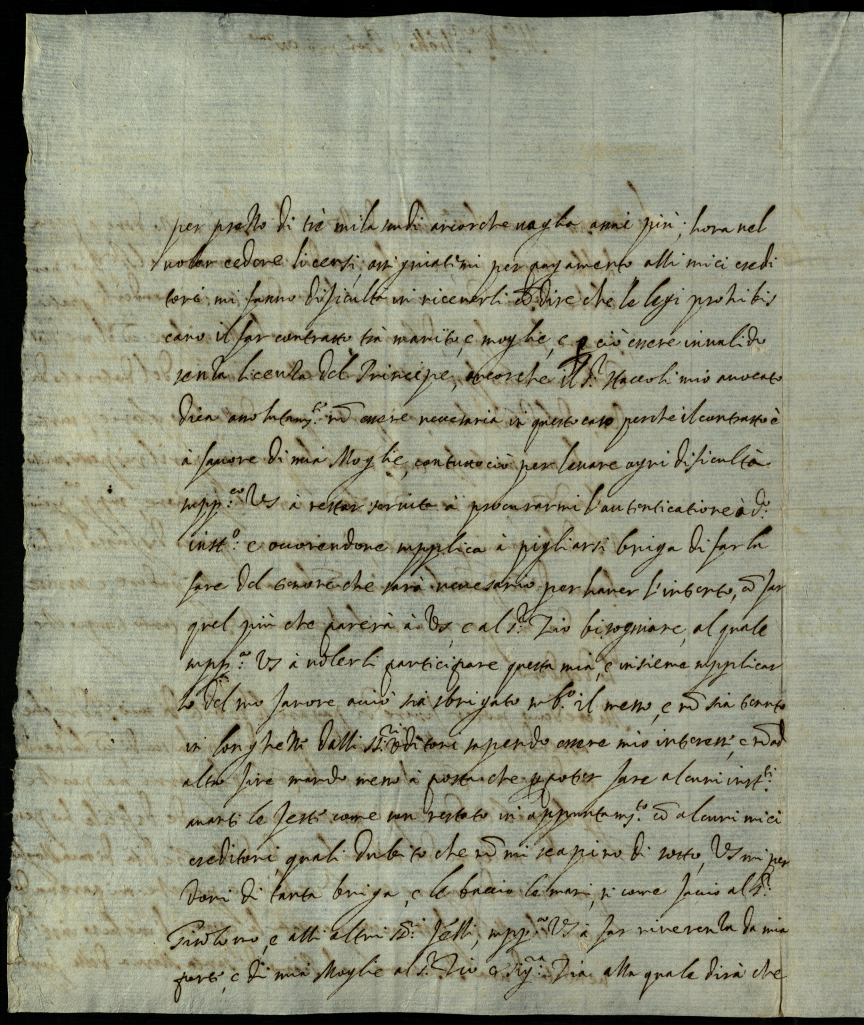 per prezzo di tre mila scudi ancorche vaglia assai più; hora nel
voler cedere li censi, assigniatimi per pagamento alli miei credi
tori mi fanno dificultà in riceverli cō dire che le legi prohibis
cano il far contratto trà marito, e moglie, e p ciò essere invalido
senza licenza del Principe, ancorche il Sr. Staccoli mio avvocato
dica assolutamte. nō essere necessaria in questo caso perche il contratto è
à favore di mia Moglie, contutociò per levare ogni dificultà
suppco. VS à restar servita à procurarmi l'autenticatione à do.
instto. e occorendone supplica à pigliarsi briga di farla
fare del tenore che sarà necessario per haver l'intento, cō far
quel più che parerà à VS, e al Sr. Zio bisogniare, al quale
suppa. VS à volerli participare questa mia, e insieme supplicar
lo del suo favore acciò sia sbrigato sub.o il messo, e nō sia tenuto
in longhezze dalli SS.ri Uditori sapendo essere mio interesse, e nō ad
altro fine mando messo à posta che p poter fare alcuni instti.
avanti le feste come son restato in appuntamto. cō alcuni miei
creditori, quali dubito che nō mi scapino di sotto, VS mi per
doni di tanta briga, e le baccio le mani, si come faccio al Sr.
Girolomo, e alli altri SSri. figli, suppa. VS à far riverenza da mia
parte, e di mia Moglie al Sr. Zio e Siga. Zia alla quale dirà che